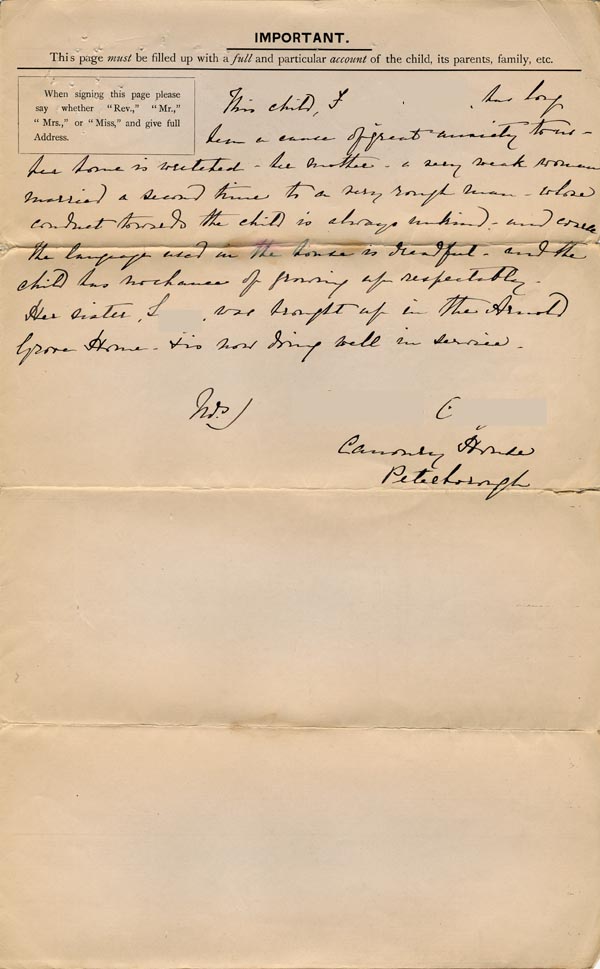 IMPORTANT.
This page must be filled up with a full and particular account of the child, its parents, family, etc.
When signing this page please
say whether "Rev.," "Mr.,"
"Mrs.," or "Miss," and give full
Address.
This child, F has long
been a cause of great anxiety to us -
her home is wretched - her mother - a very weak woman
married a second time to a very rough man - whose
conduct towards the child is always unkind - and coarse
the language used in the house is dreadful - and the
child has no chance of growing up respectably.
Her sister, L , was brought up in the Arnold
Grove Home - & is now doing well in service -
Mrs) C
Canonry House
Peterborough